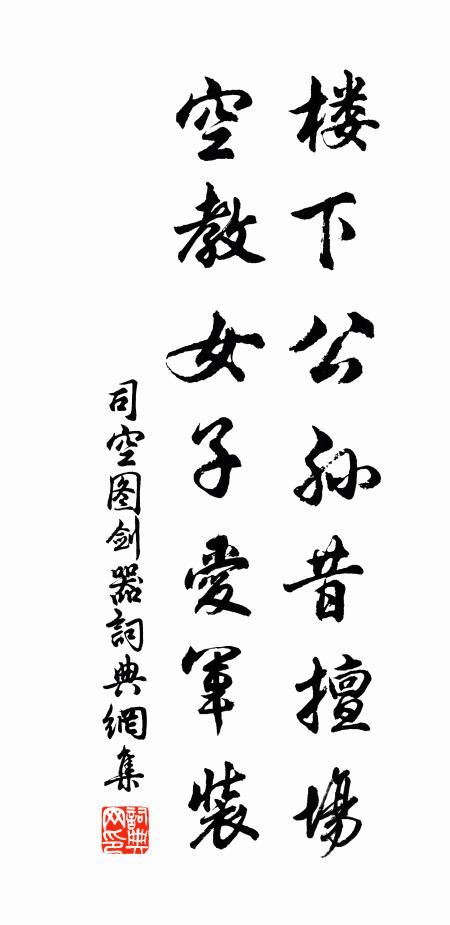 楼下公孙昔擅場
空教女子愛軍装
司空图剑器詞典網集
詞典网印